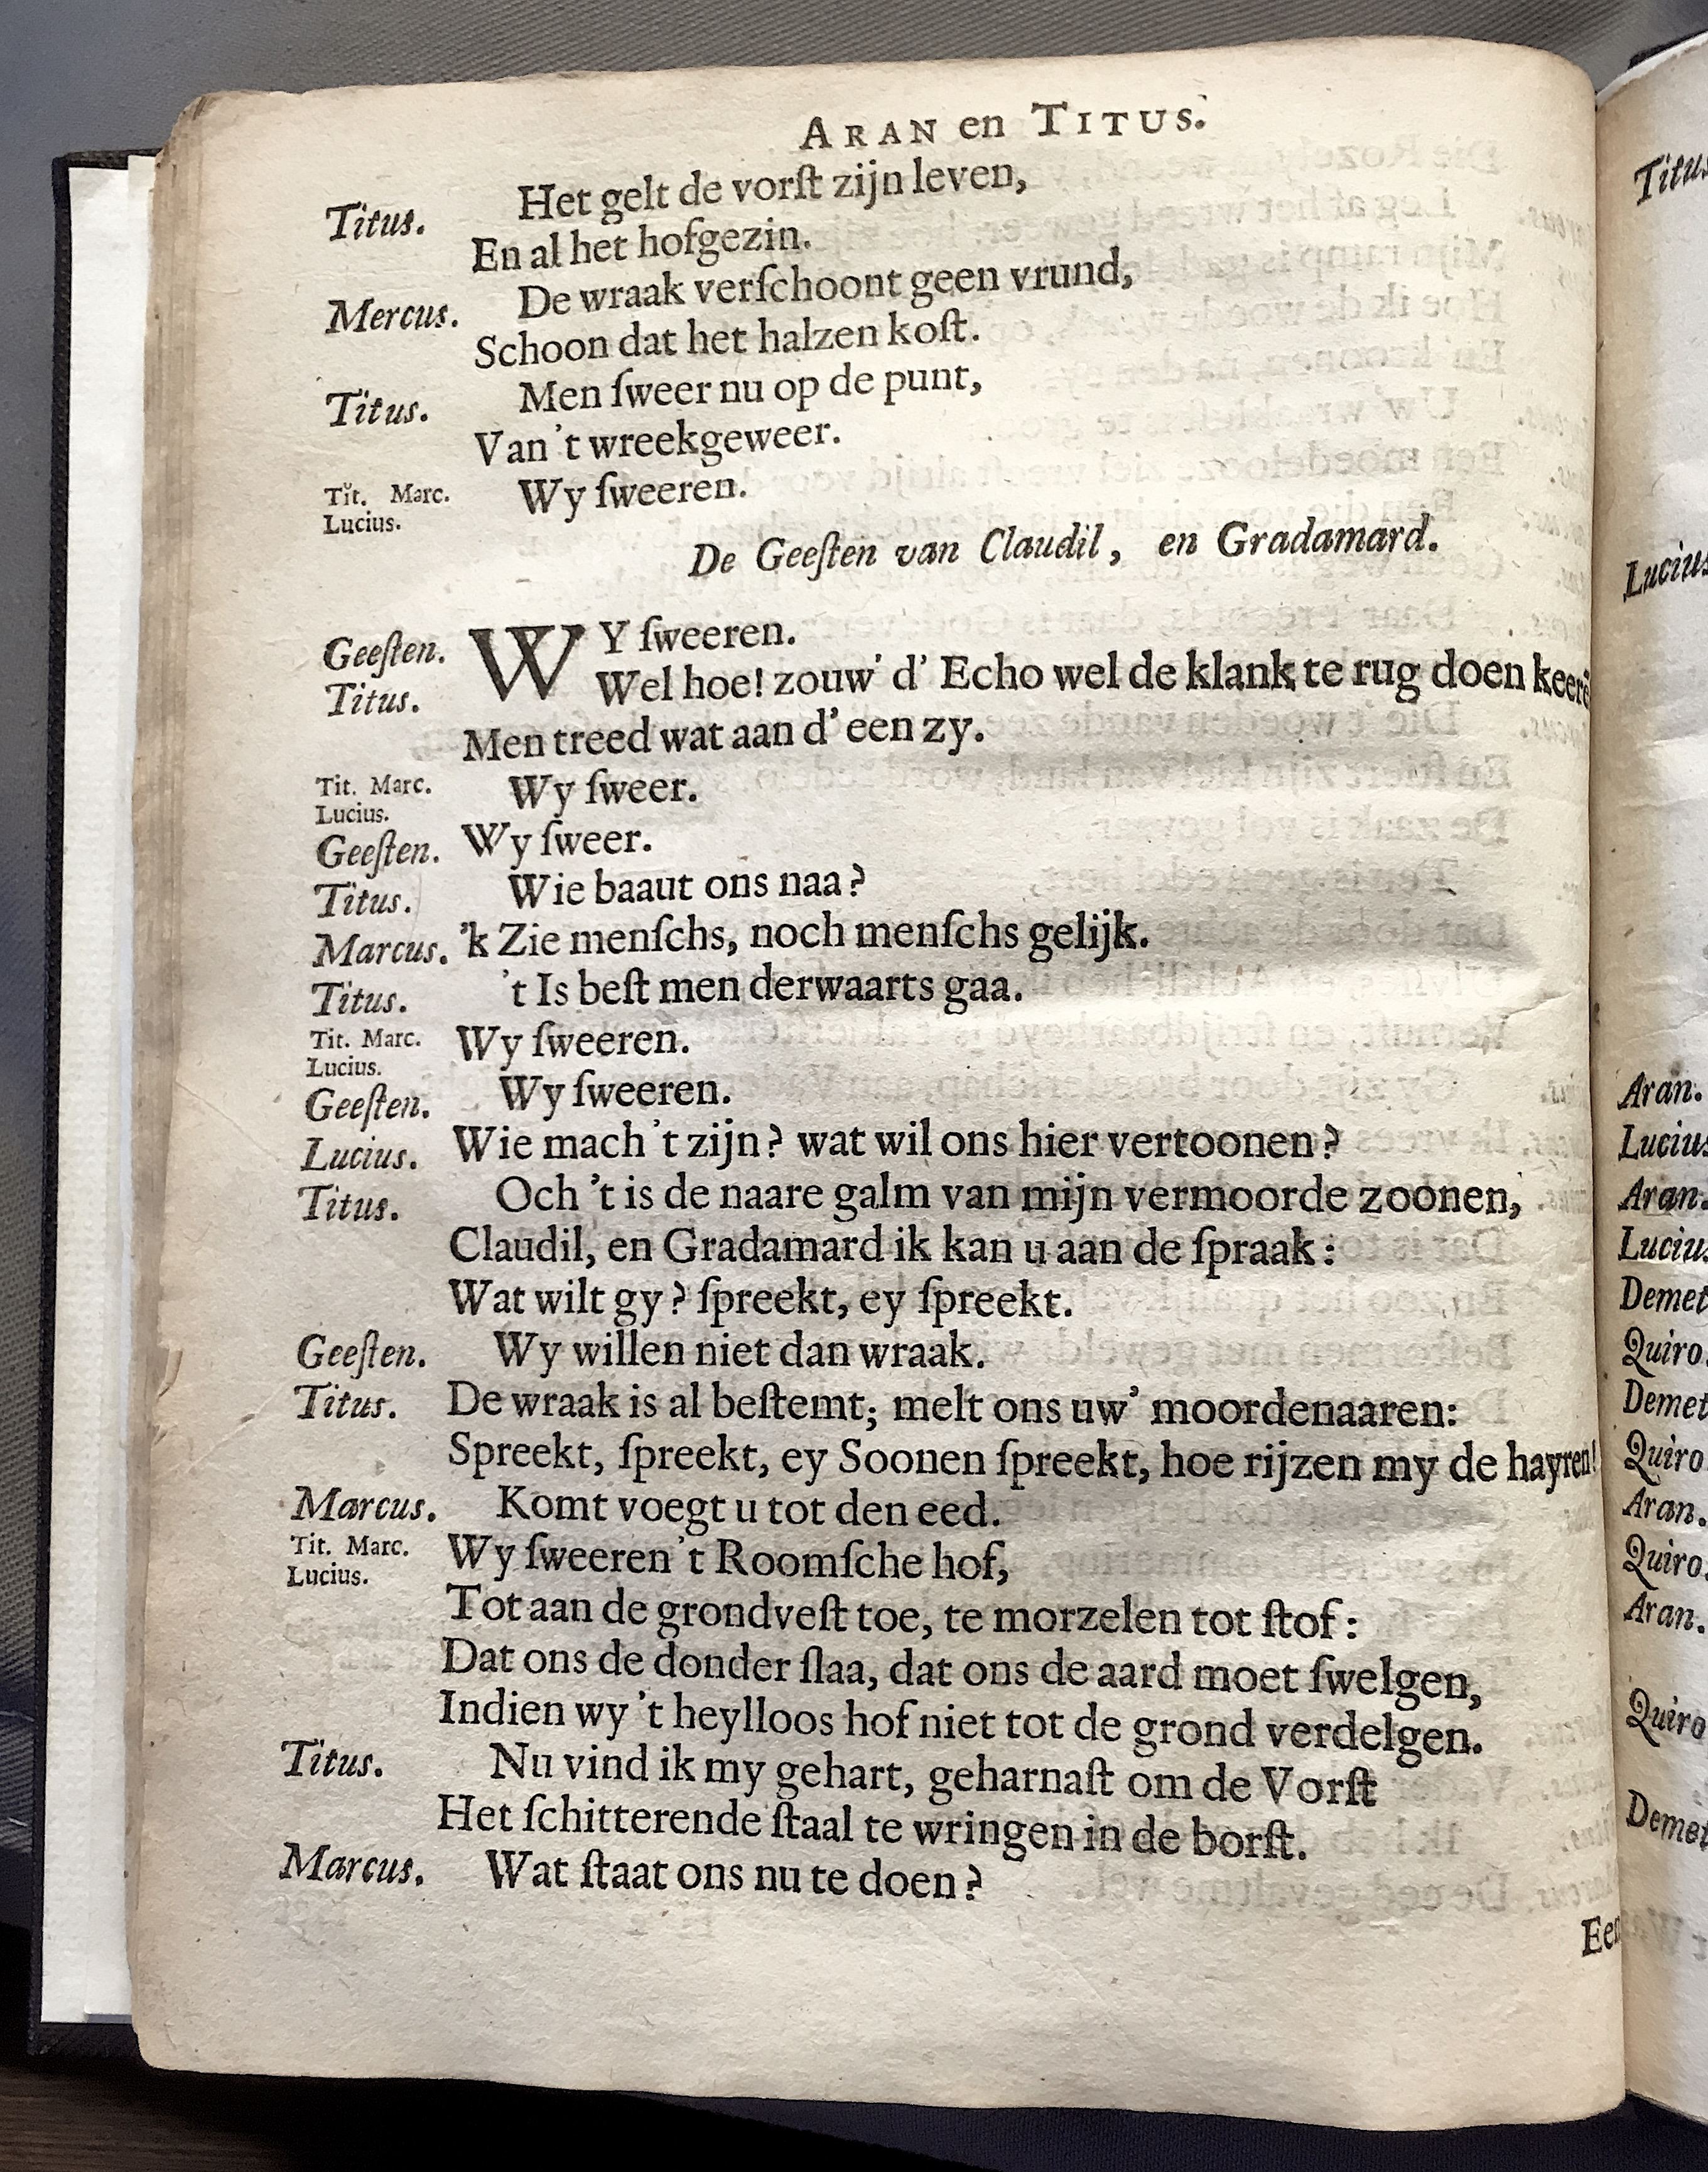 ARAN en TITUS.
Titus. Het gelt de vorſt zijn leven,
En al het hofgezin.
Mercus. De wraak verſchoont geen vrund,
Schoon dat het halzen koſt.
Titus. Men ſweer nu op de punt,
Van 't wreekgeweer.
Tit. Marc. Lucius. Wy ſweeren.
De Geeſten van Claudil, en Gradamard.
Geeſten. WY ſweeren.
Titus. Wel hoe! zouw' d' Echo wel de klank te rug doen keerē
Men treed wat aan d' een zy.
Tit. Marc. Lucius. Wy ſweer.
Geeſten. Wy ſweer.
Titus. Wie baaut ons naa?
Marcus. 'k Zie menſchs, noch menſchs gelijk.
Titus. 't Is beſt men derwaarts gaa.
Tit. Marc. Lucius. Wy ſweeren.
Geeſten. Wy ſweeren.
Lucius. Wie mach 't zijn? wat wil ons hier vertoonen?
Titus. Och 't is de naare galm van mijn vermoorde zoonen,
Claudil, en Gradamard ik kan u aan de ſpraak:
Wat wilt gy? ſpreekt, ey ſpreekt.
Geeſten. Wy willen niet dan wraak.
Titus. De wraak is al beſtemt; melt ons uw' moordenaaren:
Spreekt, ſpreekt, ey Soonen ſpreekt, hoe rijzen my de hayren!
Marcus. Komt voegt u tot den eed.
Tit. Marc. Lucius. Wy ſweeren 't Roomſche hof,
Tot aan de grondveſt toe, te morzelen tot ſtof:
Dat ons de donder ſlaa, dat ons de aard moet ſwelgen,
Indien wy 't heylloos hof niet tot de grond verdelgen.
Titus. Nu vind ik my gehart, geharnaſt om de Vorſt
Het ſchitterende ſtaal te wringen in de borſt.
Marcus. Wat ſtaat ons nu te doen?
Titus
Lucius
Aran.
Lucius
Aran.
Lucius
Demet
Quiro.
Demet
Quiro
Aran.
Quiro.
Aran.
Quiro
Demet